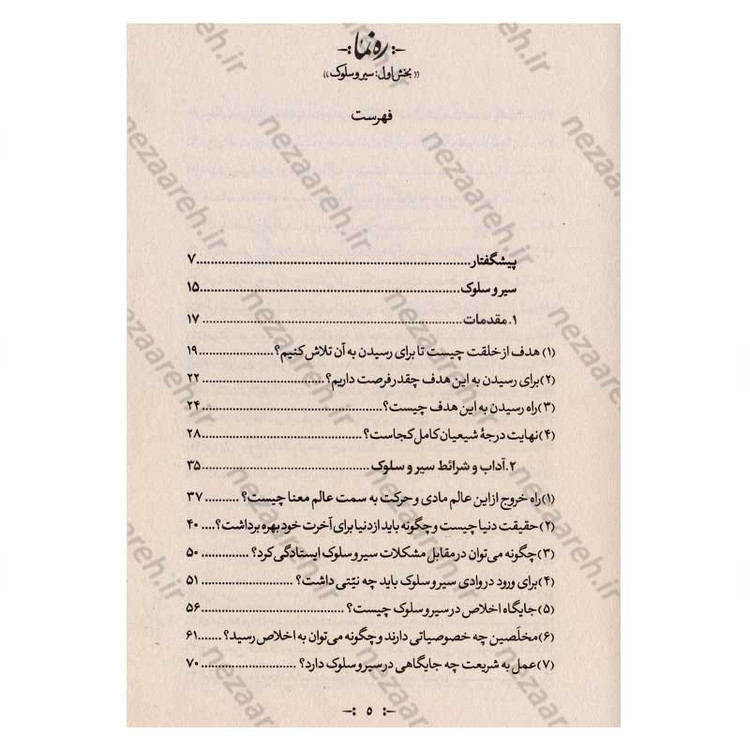 ره‌نما
«بخش اول: سیر و سلوک»
فهرست
پیشگفتار ........ ۷
سیر و سلوک ........ ۱۵
۱. مقدمات ........ ۱۷
(۱) هدف از خلقت چیست تا برای رسیدن به آن تلاش کنیم؟ ........ ۱۹
(۲) برای رسیدن به این هدف چقدر فرصت داریم؟ ........ ۲۲
(۳) راه رسیدن به این هدف چیست؟ ........ ۲۴
(۴) نهایت درجۀ شیعیان کامل کجاست؟ ........ ۲۸
۲. آداب و شرائط سیر و سلوک ........ ۳۵
(۱) راه خروج از این عالم مادی و حرکت به سمت عالم معنا چیست؟ ........ ۳۷
(۲) حقیقت دنیا چیست و چگونه باید از دنیا برای آخرت خود بهره برداشت؟ .... ۴۰
(۳) چگونه می‌توان در مقابل مشکلات سیر و سلوک ایستادگی کرد؟ ........ ۵۰
(۴) برای ورود در وادی سیر و سلوک باید چه نیّتی داشت؟ ........ ۵۱
(۵) جایگاه اخلاص در سیر و سلوک چیست؟ ........ ۵۶
(۶) مخلَصین چه خصوصیاتی دارند و چگونه می‌توان به اخلاص رسید؟ ....... ۶۱
(۷) عمل به شریعت چه جایگاهی در سیر و سلوک دارد؟ ........ ۷۰
۵
nezaareh.ir